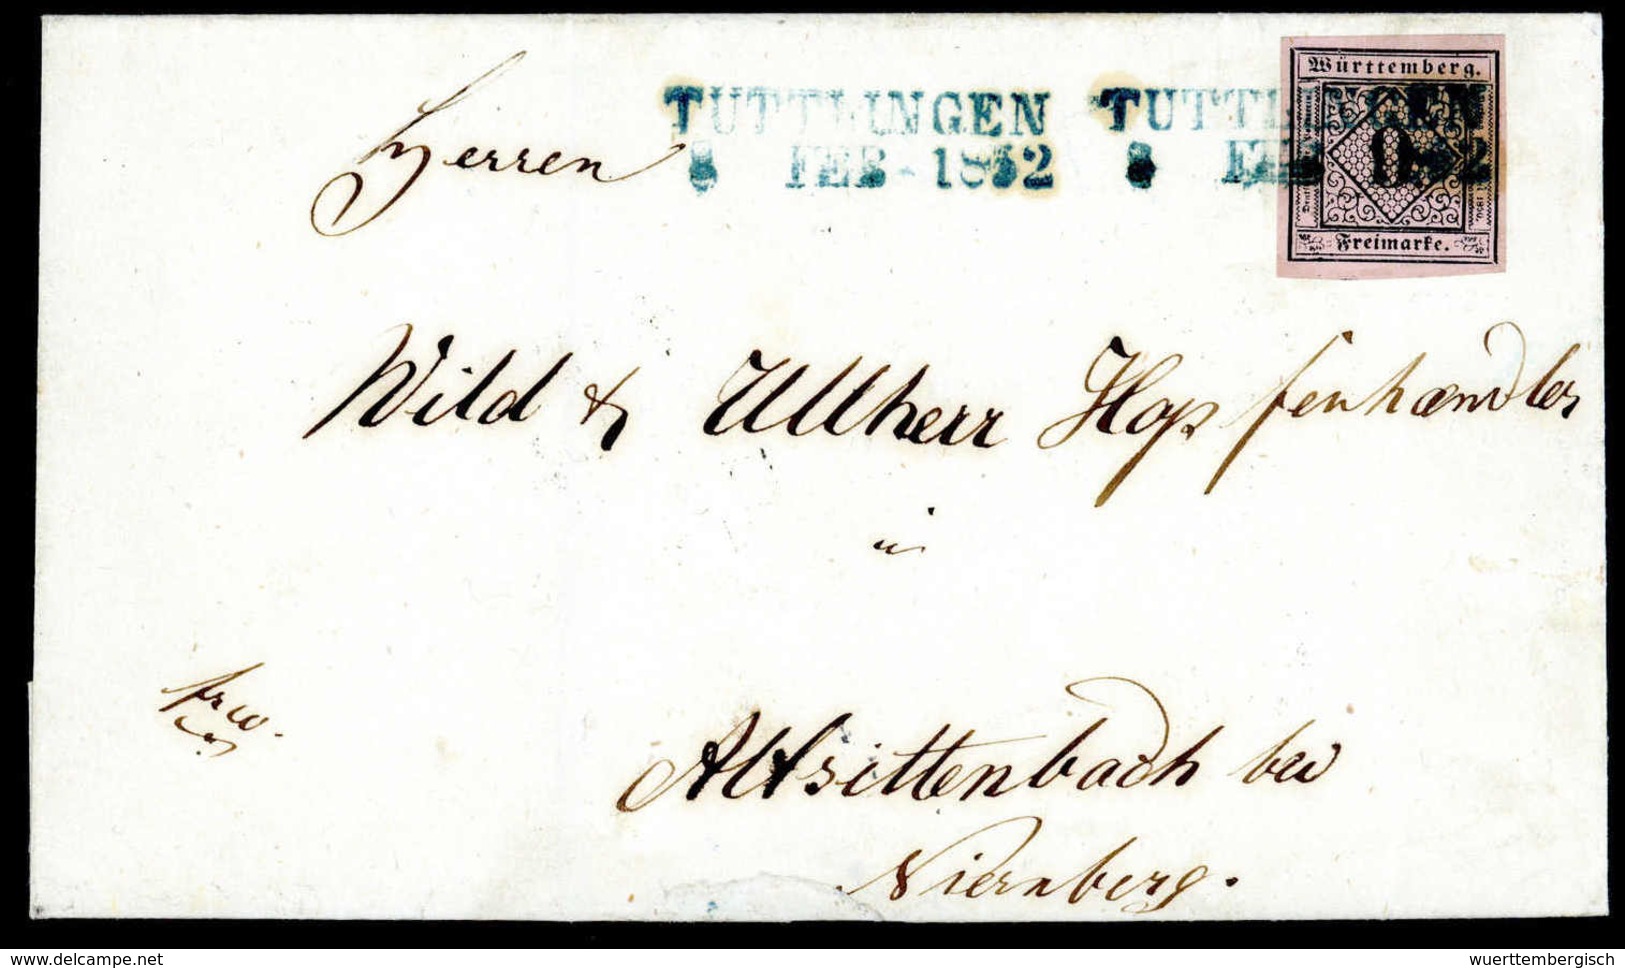 TUTTLINGEN TUTTLINGEN
8 FEB - 1852 8 FEB 1852
Württemberg.
9
Freimarke.
Herren
Wild & Ullherr Hopfenhændler
in
Altsittenbach bei
Niernberg.
www.delcampe.net
wuerttembergisch